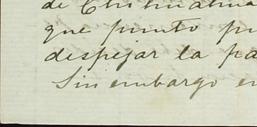 de Chihuahua
que punto pu
despejar la pa
Sin embargo en